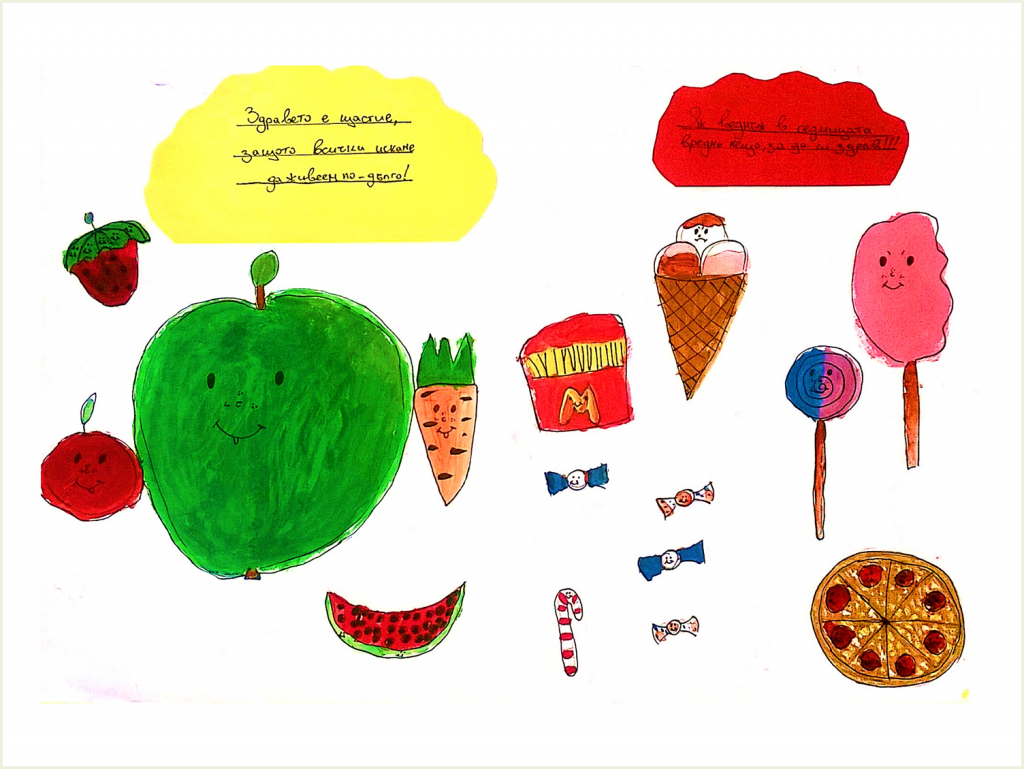 Здравето е щастие,
защото всички искаме
да живеем по-дълго!
Яж веднъж в седмицата
вредно нещо, за да си здрав!!!
M